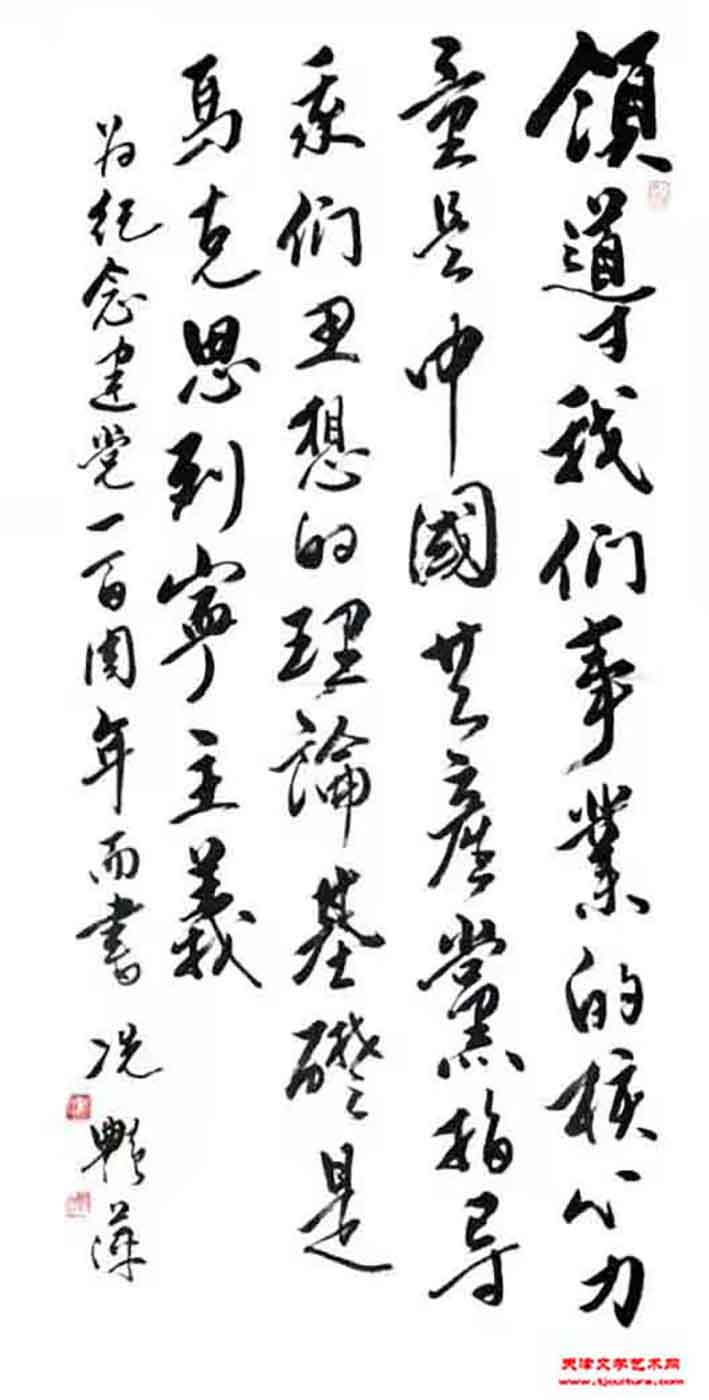 領導我們事業的核心力
量是中國共產黨指导
我们思想的理論基礎是
馬克思列寧主義
为纪念建党一百周年而書 冼艷萍
天津文学艺术网
www.tjculture.com